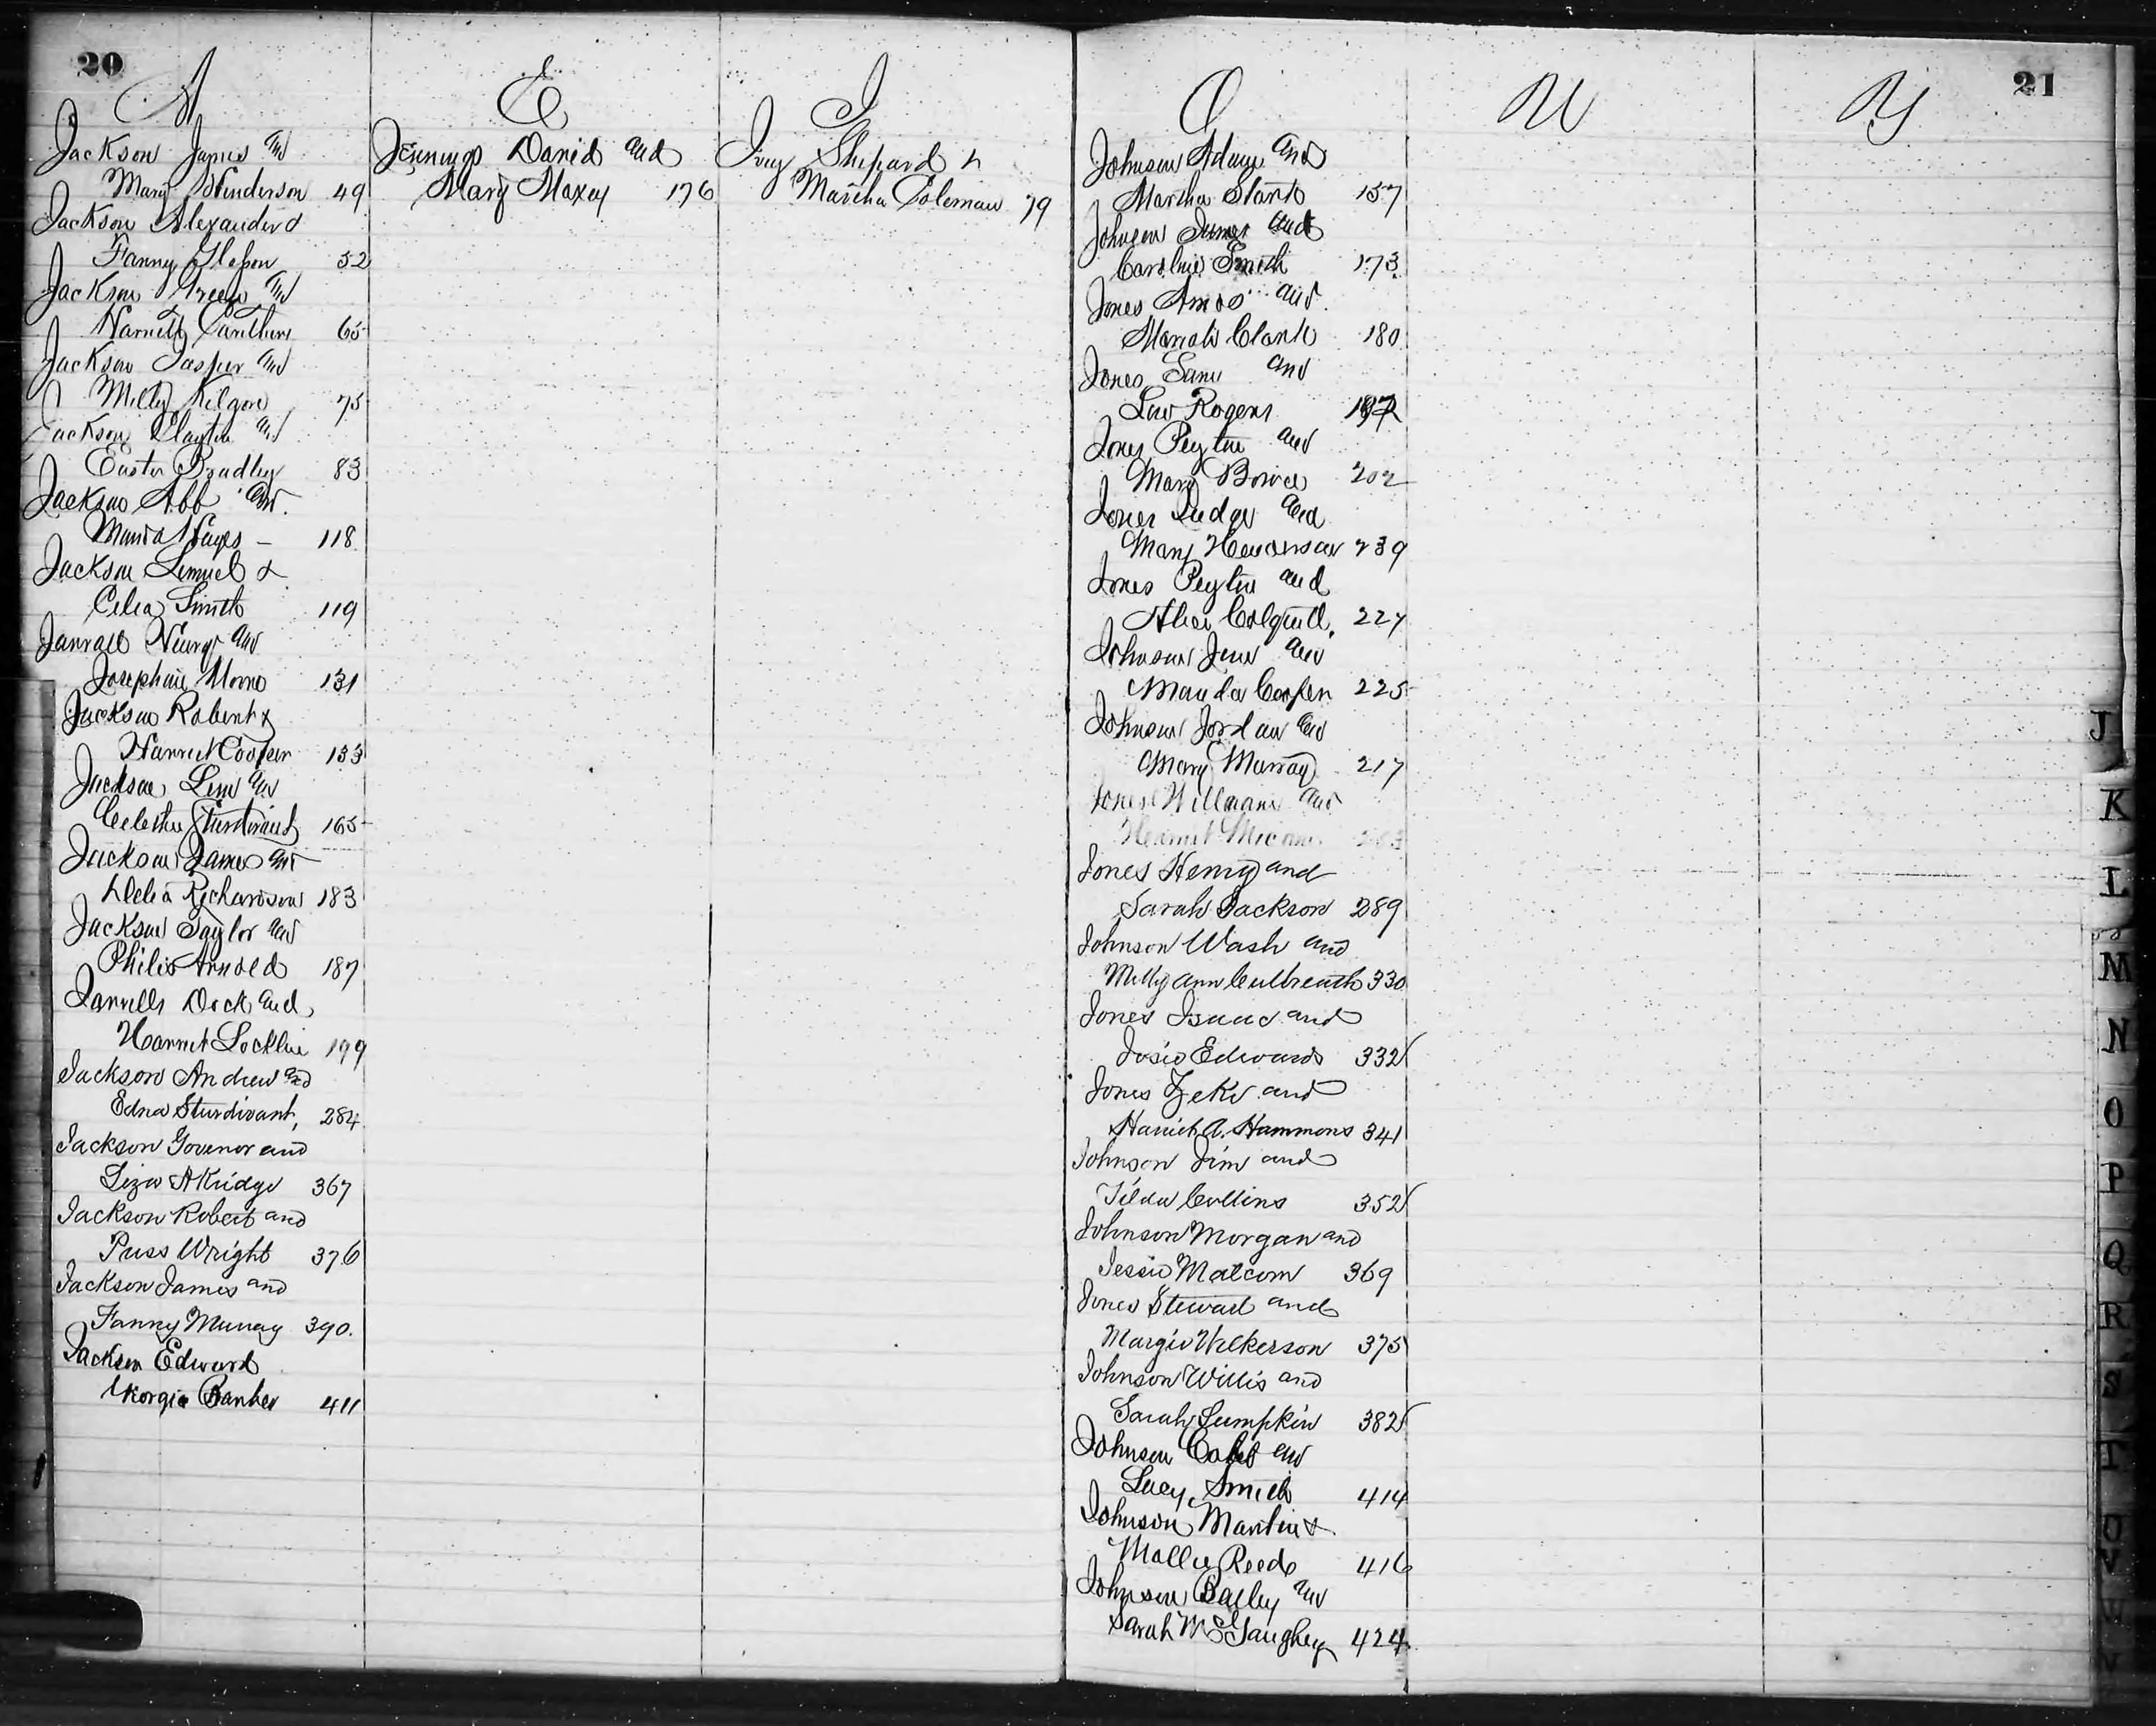 20
A
Jackson James and
Mary Henderson 49
Jackson Alexander &
Fanny Glepon 52
Jackson Green and
Harriett 65
Jackson Jasper and
Milly Kilgore 75
Jackson Clayton and
Easter Bradley 83
Jackson Abb and
Manda Hayes — 118
Jackson Lemuel &
Celia Smith 119
Jarrall Henry and
Josephine Moore 131
Jackson Robert &
Harriet Cooper 133
Jackson Lem and
Celestia Sturdivant 165
Jackson James and
Delia Richardson 183
Jackson Taylor and
Philis Arnold 187
Jarrells Dock and
Harriet Locklin 199
Jackson Andrew and
Edna Sturdivant, 284
Jackson Govenor and
Liza Akridge 367
Jackson Robert and
Puss Wright 376
Jackson James and
Fanny Murray 390.
Jackson Edward
Georgia Banks 411
E
Jennings David and
Mary Maxey 176
I
Ivey Shepard &
Martha Coleman 79
21
O
Johnson Adam and
Martha Stark 157
Johnson James and
Caroline Smith 173
Jones Amos and
Mariah Clark 180
Jones Sam and
Lew Rogers 197
Jones Peyton and
Mary 202
Jones Judge and
Mary Henderson 239
Jones Peyton and
Alice Colquitt, 227
Johnson and
Manda Cooper 225
Johnson Jordan and
Mary Murray 217
Jones William and
Harriet
Jones Henry and
Sarah Jackson 289
Johnson Wash and
Milly Ann Culbreath 330
Jones Isaac and
Josie Edwards 332
Jones Zeke and
Harriet A. Hammons 341
Johnson Jim and
Tilda Collins 352
Johnson Morgan and
Jessie Malcom 369
Jones Steward and
Margie Wilkerson 375
Johnson Willis and
Sarah Lumpkin 382
Johnson Caleb and
Lucy Smith 414
Johnson Martin &
Mollie Reed 416
Johnson Bailey and
Sarah McGaughey 424
U
Y
J
K
L
M
N
O
P
Q
R
S
T
U
V
W